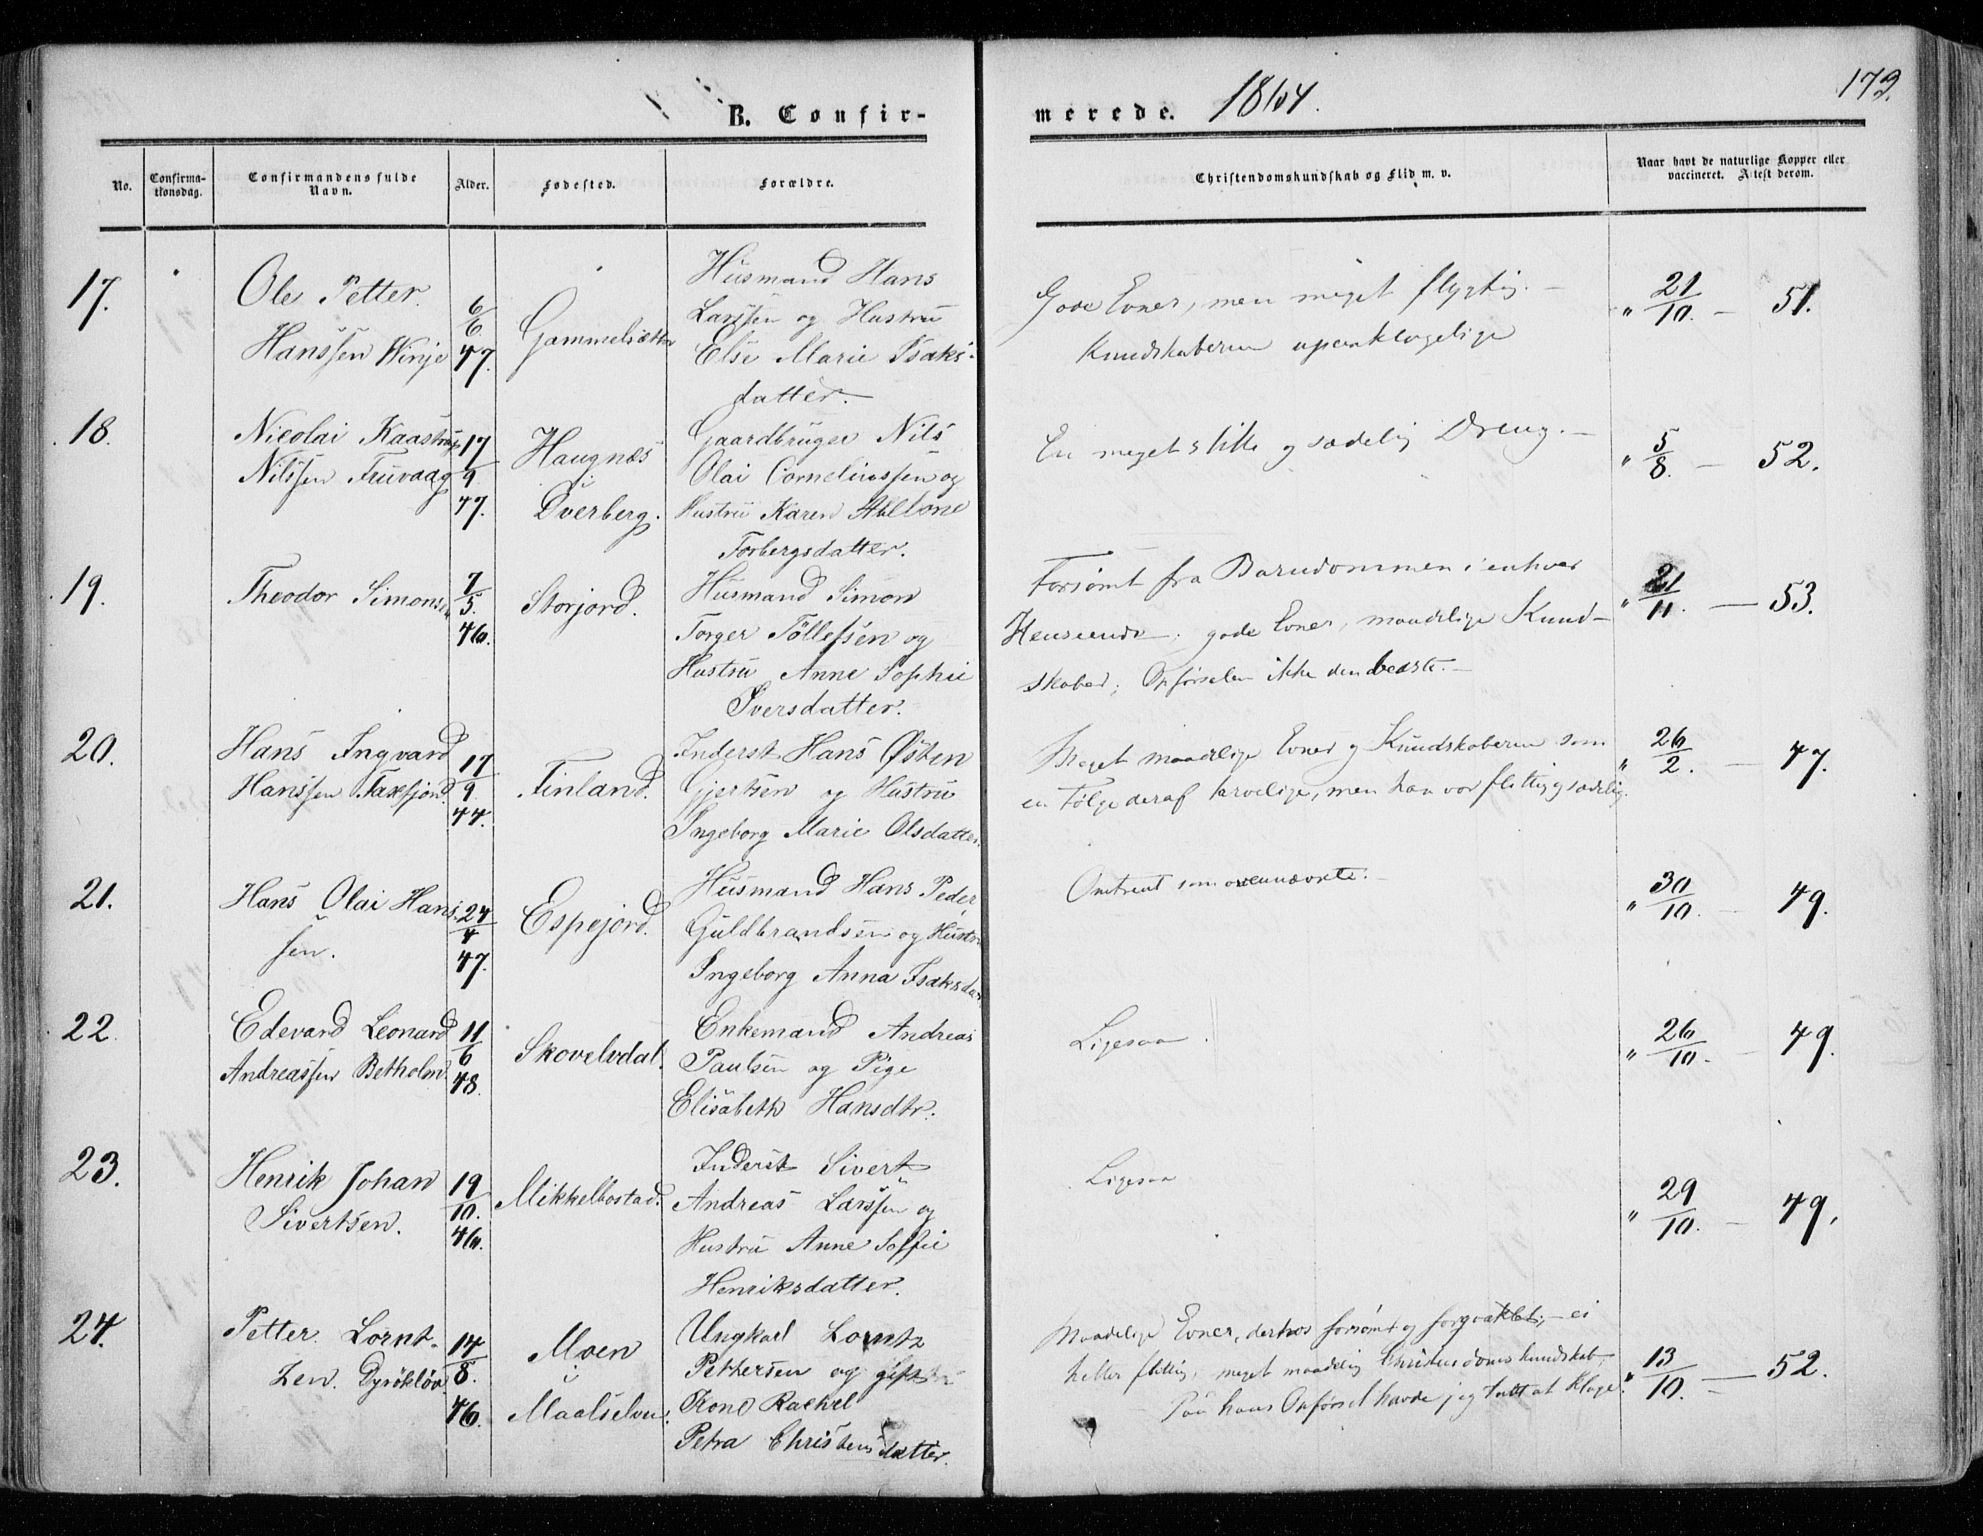 B. Confir-
merede. 1864.
173.
No.
Confirma-
tionsdag.
Confirmandens fulde
Navn.
Alder.
Fødested.
Forældre.
Christendomskundskab og Flid m. v.
Naar havt de naturlige Kopper eller
vaccineret. Attest derom.
17.
Ole Petter
Hanssen Winje
6/6 47.
Gammelsæter
Husmand Hans
Larssen og Hustru
Else Marie Isaks-
datter.
Gode Evner, men meget flygtig. —
Kundskaberne upaaklagelige
" 21/10. — 51.
18.
Nicolai Kaastrup
Nilssen Fuvaag
17/9 47.
Haugnæs
i
Dverberg.
Gaardbruger Nils
Olai Corneliussen og
Hustru Karen Abelone
Torbergsdatter.
En meget stille og sædelig Dreng. —
" 5/8. — 52.
19.
Theodor Simonsen
7/5. 46.
Storjord.
Husmand Simon
Torger Tøllefsen og
Hustru Anne Sophie
Iversdatter.
Forsømt fra Barndommen i enhver
Henseende, gode Evner, maadelige Kund-
skaber; Opførselen ikke den bedste. —
" 21/11. — 53.
20.
Hans Ingvard
Hanssen Faxfjord.
17/9 44.
Finland.
Inderst Hans Østen
Gjertsen og Hustru
Ingeborg Marie Olsdatter.
Meget maadelige Evner og Kundskaberne som
en Følge deraf tarvelige, men han var flittig og sædelig.
" 26/2. — 47.
21.
Hans Olai Hans-
sen.
24/4 47.
Espejord.
Husmand Hans Peder
Guldbrandsen og Hustru
Ingeborg Anna Isaksdatr
Omtrent som ovennævnte. —
" 30/10. — 49.
22.
Edevard Leonard
Andreassen Betholm.
11/6 48.
Skovelvdal.
Enkemand Andreas
Paulsen og Pige
Elisabeth Hansdtr.
Ligesaa.
" 26/10. — 49.
23.
Henrik Johan
Sivertsen.
19/10. 46.
Mikkelbostad.
Inderst Sivert
Andreas Larssen og
Hustru Anne Soffie
Henriksdatter.
Ligesaa
" 29/10. — 49.
24.
Petter Lornt-
zen. Dyrøkløv
14/8. 46.
Moen
i
Maalselven.
Ungkarl Lorntz
Pettersen og gift
Kone Rachel
Petra Christensdatter.
Maadelige Evner, derhos forsømt og forqvaklet; — ei
heller flittig, meget maadelig Christendomskundskab,
Paa hans Opførsel havde jeg tatt at klage.
" 13/10. — 52.